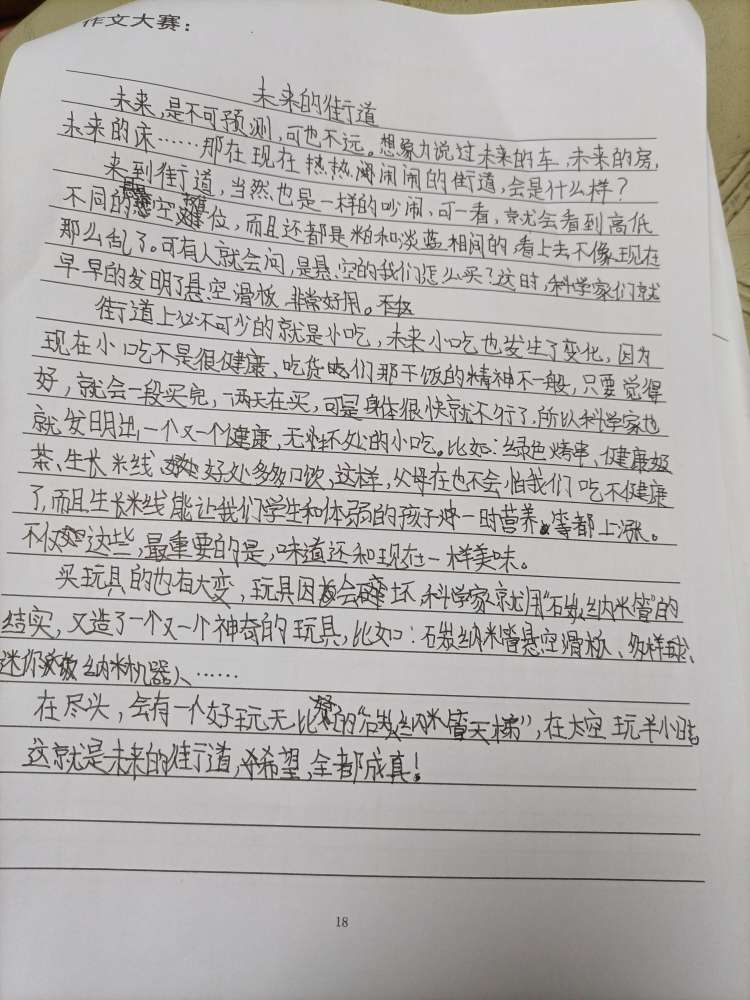 作文大赛:
未来的街道
未来,是不可预测,可也不远。想象力说过未来的车,未来的房,
未来的床……那在现在热热闹闹的街道,会是什么样?
来到街道,当然也是一样的吵闹,可一看,就会看到高低
不同的悬空摊位,而且还都是粉和淡蓝相间的看上去不像现在
那么乱了。可有人就会问,是悬空的我们怎么买?这时,科学家们就
早早的发明了悬空滑板,非常好用。
街道上必不可少的就是小吃,未来小吃也发生了变化,因为
现在小吃不是很健康、吃货们那干饭的精神不一般,只要觉得
好,就会一段买完,一两天在买,可是身体很快就不行了,所以科学家也
就发明出一个又一个健康,无坏处的小吃。比如:绿色烤串、健康奶
茶、生长米线、好处多多口饮,这样,父母在也不会怕我们吃不健康
了,而且生长米线能让我们学生和体弱的孩子一时营养等都上涨。
不仅这些,最重要的是,味道还和现在一样美味。
买玩具的也有大变,玩具因会坏,科学家就用“石炭纳米管”的
结实,又造了一个又一个神奇的玩具,比如:石炭纳米管悬空滑板、多样球、
迷你纳米机器人……
在尽头,会有一个好玩无比的“石炭纳米管天梯”,在太空玩半小时。
这就是未来的街道,希望,全都成真!
18